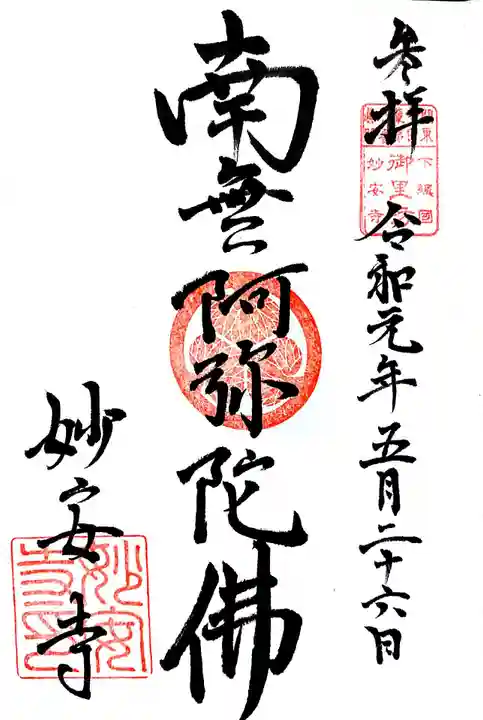 参拝 令和元年五月二十六日
関東下総国
御里
妙安寺
南無阿弥陀佛
妙安寺
妙安寺印